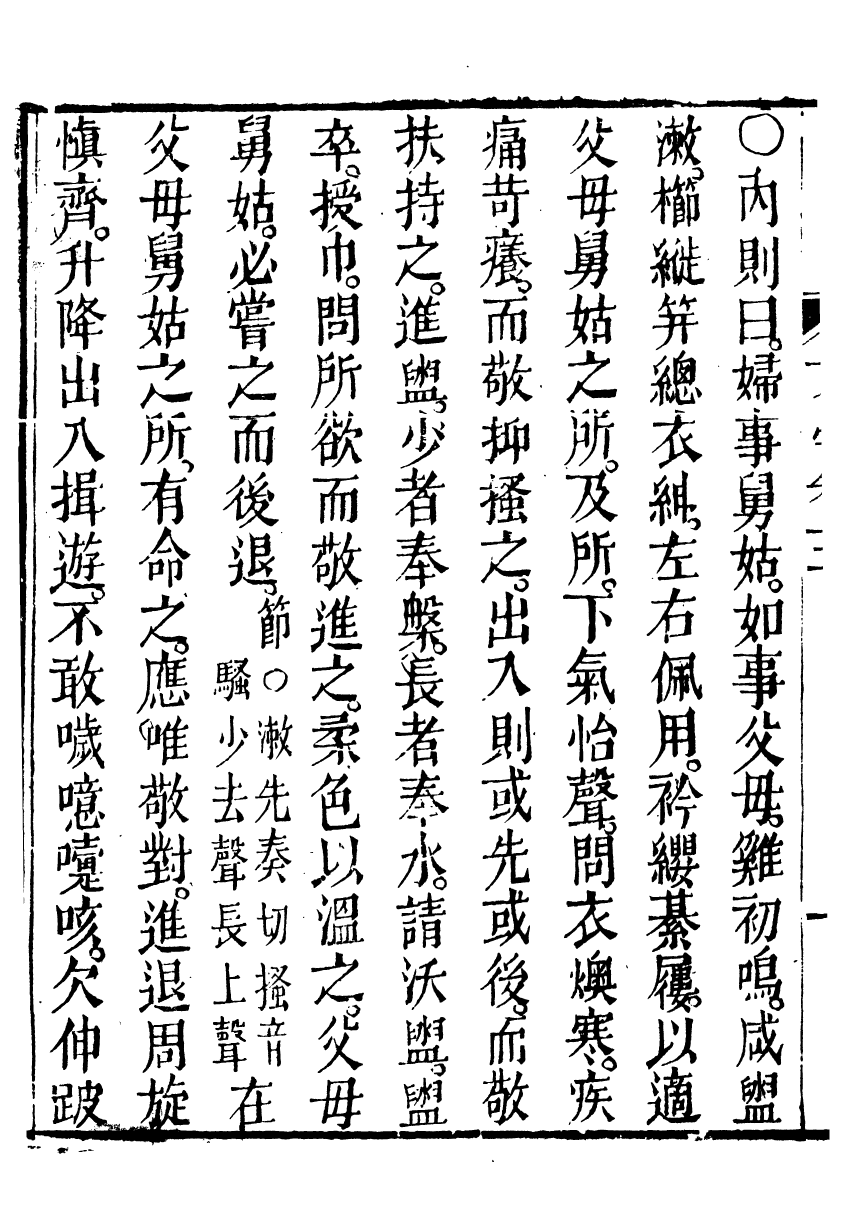 ○內則曰。婦事舅姑。如事父母。雞初鳴。咸盥
漱。櫛縰笄總衣紳。左右佩用。衿纓綦屨。以適
父母舅姑之所。及所。下氣怡聲。問衣燠寒。疾
痛苛癢。而敬抑搔之。出入則或先或後。而敬
扶持之。進盥。少者奉槃。長者奉水。請沃盥。盥
卒。授巾。問所欲而敬進之。柔色以溫之。父母
舅姑。必嘗之而後退。節○漱先奏切搔音騷少去聲長上聲在
父母舅姑之所。有命之。應唯敬對。進退周旋
慎齊。升降出入揖遊。不敢噦噫嚏咳。欠伸跛